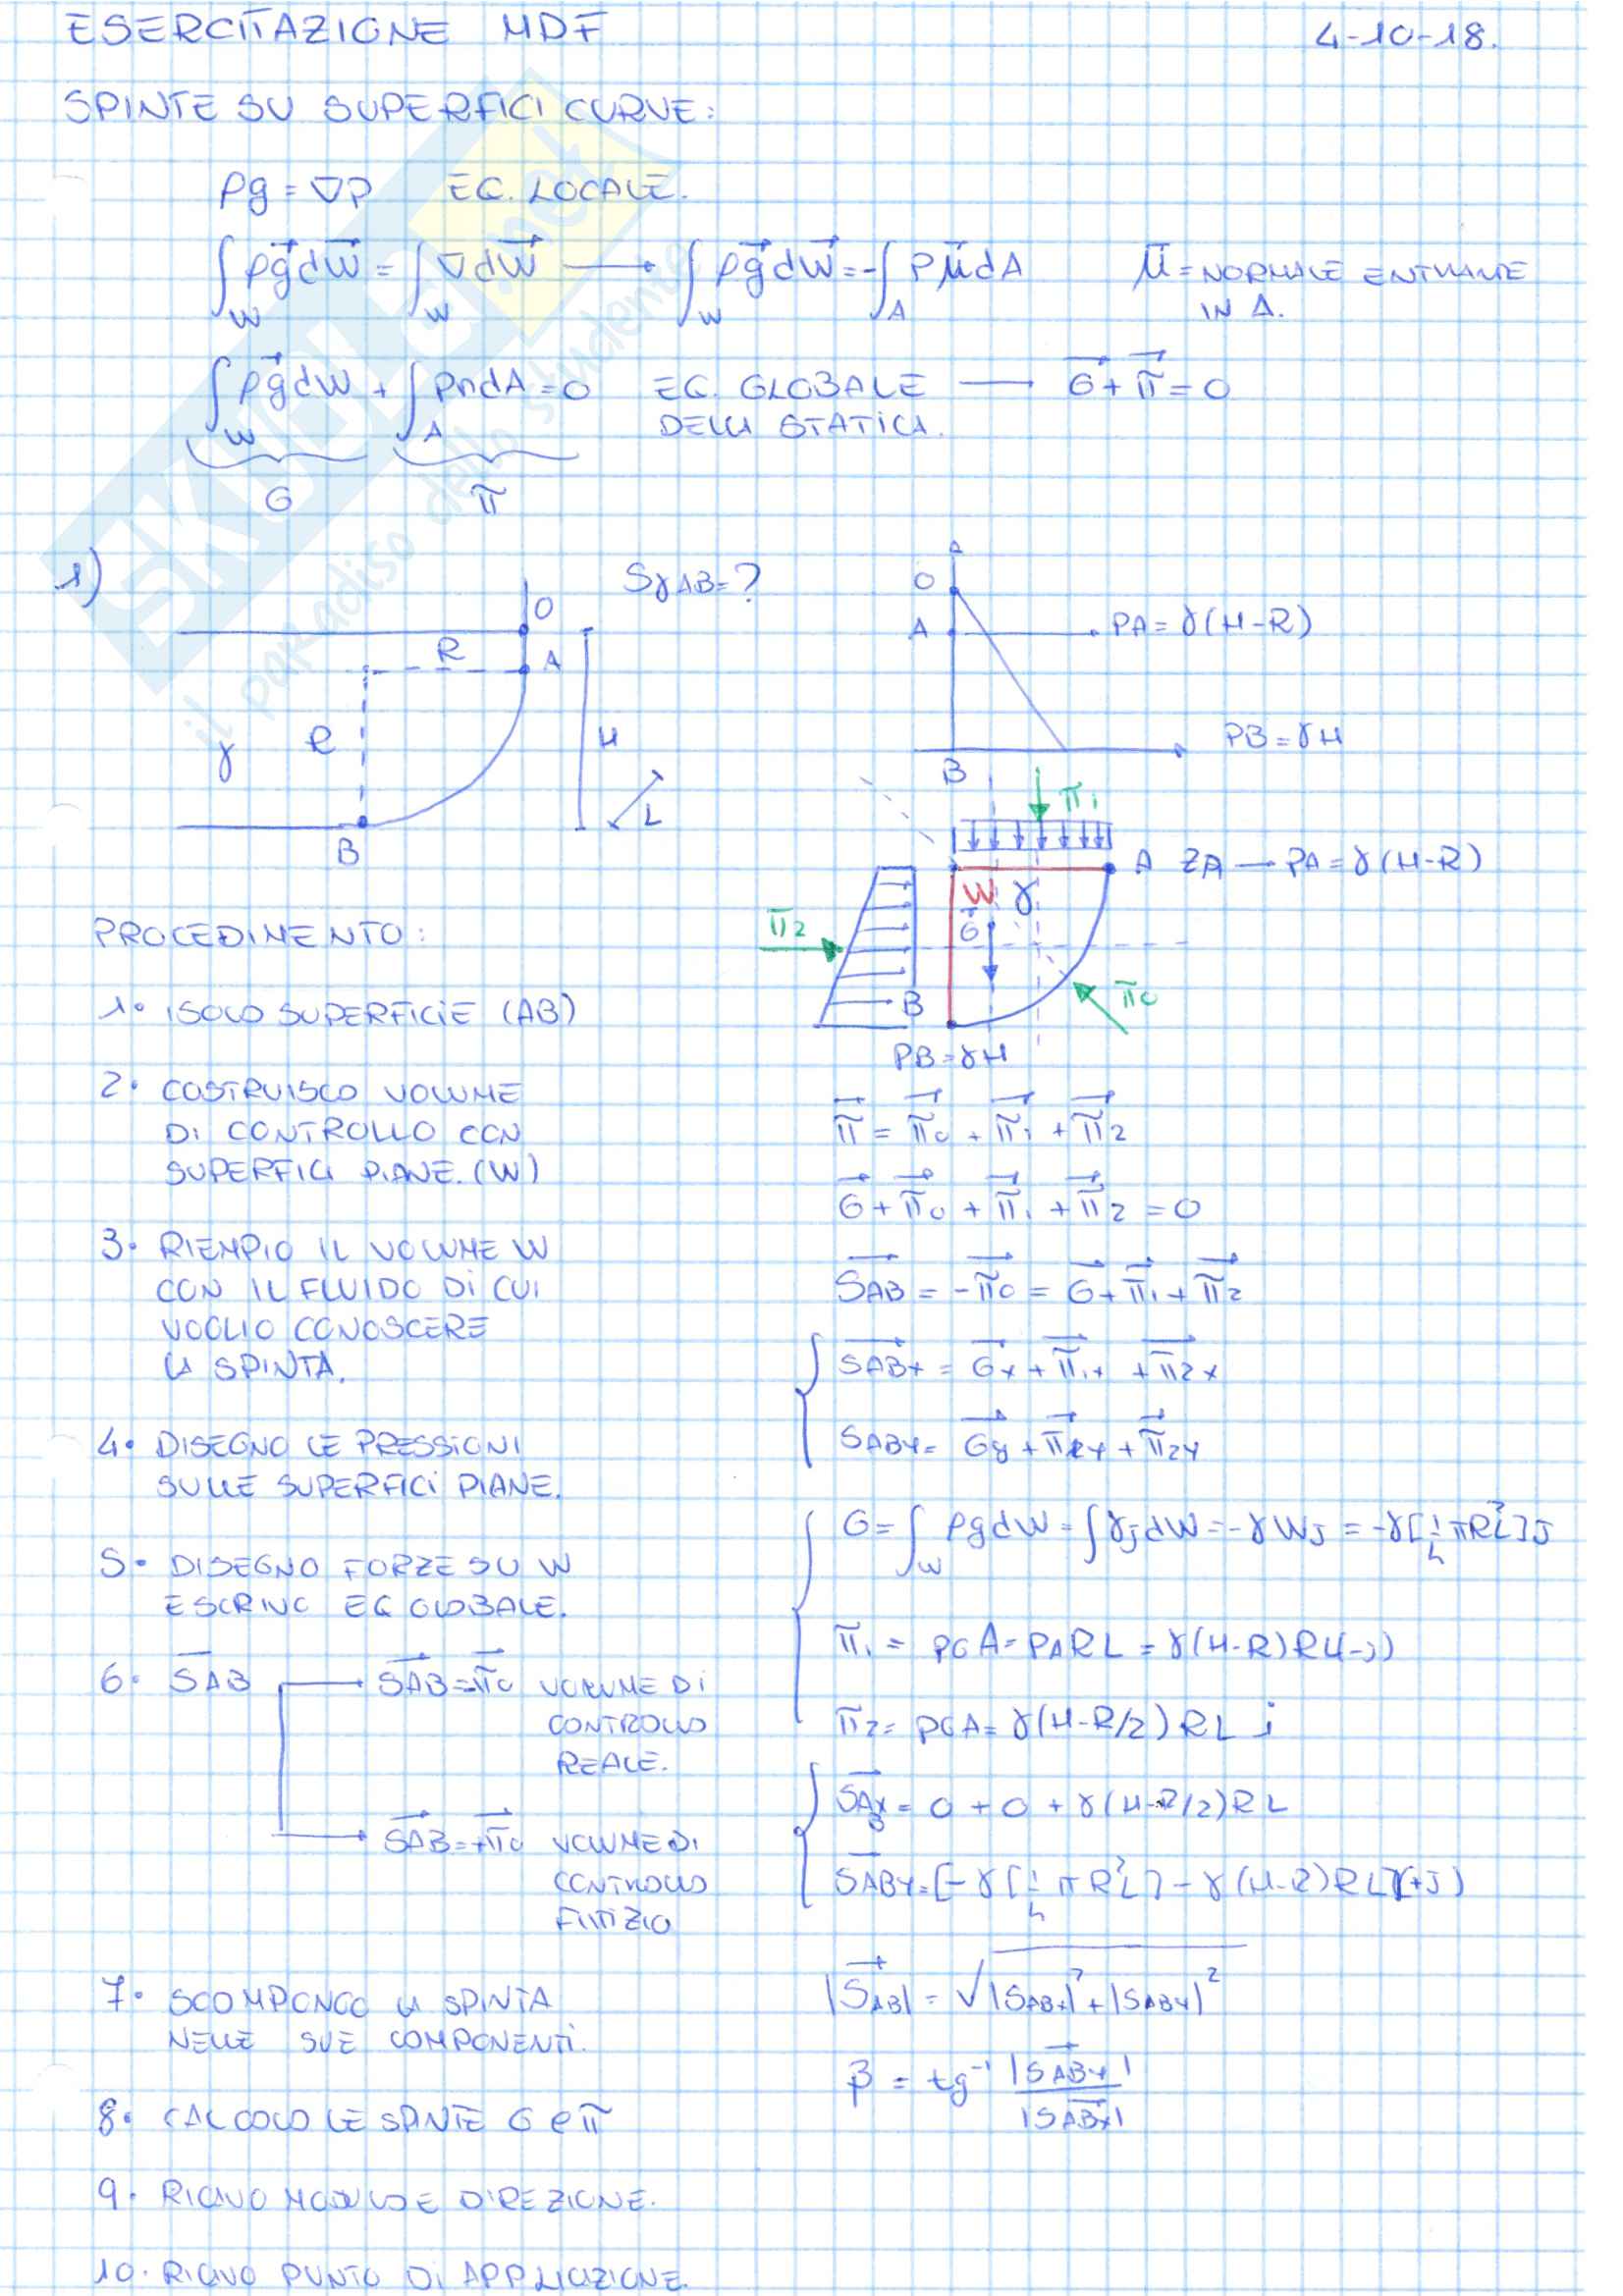 ESERCITAZIONE MDF 4-10-18.
SPINTE SU SUPERFICI CURVE:
ρg = ∇P EQ. LOCALE.
∫_W ρg⃗ dW⃗ = ∫_W ∇dW⃗ → ∫_W ρg⃗ dW⃗ = -∫_A P μ⃗ dA μ̄ = NORMALE ENTRANTE
IN A.
∫_W ρg⃗ dW + ∫_A pndA = 0 EQ. GLOBALE — G⃗ + π⃗ = 0
DELLA STATICA.
G π
1) SγAB = ?
O
R A
R
γ
H
L
B
O
A PA = γ(H-R)
PB = γH
B
π1
A ZA — PA = γ(H-R)
W γ
G⃗
π2
B
π0
PB = γH
PROCEDIMENTO:
1• ISOLO SUPERFICIE (AB)
2• COSTRUISCO VOLUME
DI CONTROLLO CON
SUPERFICI PIANE. (W)
3• RIEMPIO IL VOLUME W
CON IL FLUIDO DI CUI
VOGLIO CONOSCERE
LA SPINTA.
4• DISEGNO LE PRESSIONI
SULLE SUPERFICI PIANE.
5• DISEGNO FORZE SU W
E SCRIVO EQ GLOBALE.
6• SAB → SAB = -π0 VOLUME DI
CONTROLLO
REALE.
→ SAB = +π0 VOLUME DI
CONTROLLO
FITTIZIO
7• SCOMPONGO LA SPINTA
NELLE SUE COMPONENTI.
8• CALCOLO LE SPINTE G e π
9• RICAVO MODULO E DIREZIONE.
10. RICAVO PUNTO DI APPLICAZIONE.
π⃗ = π⃗0 + π⃗1 + π⃗2
G⃗ + π⃗0 + π⃗1 + π⃗2 = 0
SAB = -π⃗0 = G⃗ + π⃗1 + π⃗2
SABx = Gx + π1x + π2x
SABy = Gy + π1y + π2y
G = ∫_W ρgdW = ∫γjdW = -γWj = -γ[¼πR²L]j
π1 = PGA = PARL = γ(H-R)RL(-j)
π2 = PGA = γ(H-R/2)RL i
SABx = 0 + 0 + γ(H-R/2)RL
SABy = [-γ[¼πR²L] - γ(H-R)RL](+j)
|SAB| = √|SABx|² + |SABy|²
β = tg⁻¹ |SABy| / |SABx|
SKUOLA.net
il paradiso dello studente